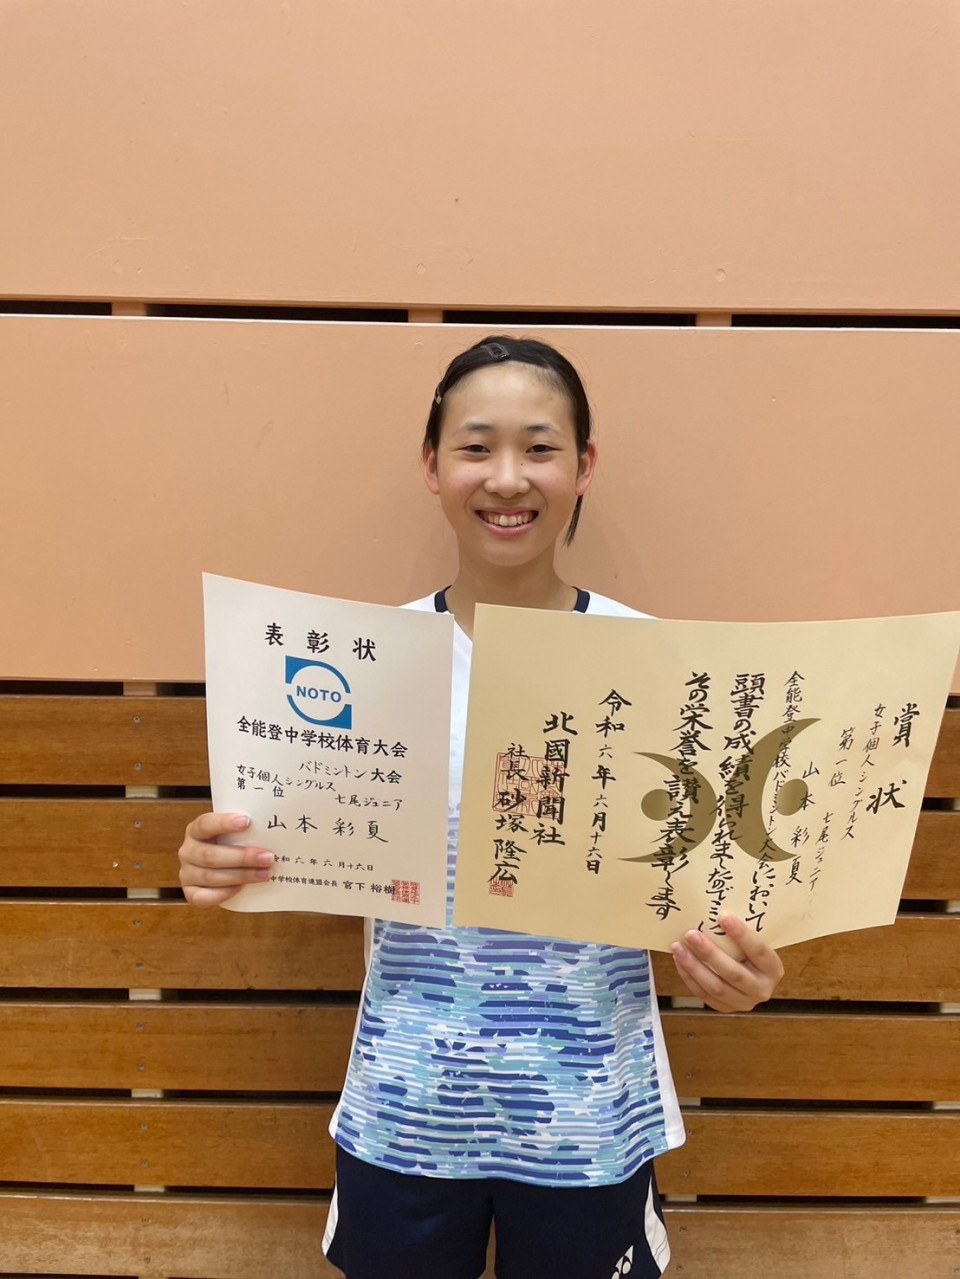 表彰状
NOTO
全能登中学校体育大会
バドミントン大会
女子個人シングルス
第一位
七尾ジュニア
山本彩夏
令和六年六月十六日
中学校体育連盟会長 宮下裕樹
賞状
女子個人シングルス
第一位 七尾ジュニア
山本彩夏
全能登中学校バドミントン大会において
頭書の成績を得られましたのでここに
その栄誉を讃え表彰します
令和六年六月十六日
北國新聞社
社長 砂塚隆広